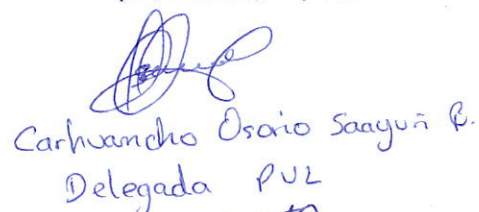 Carhuancho Osorio Saayuri R.
Delegada PVL